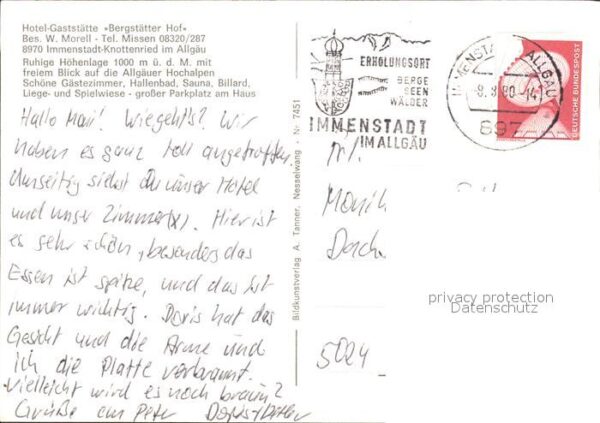 Hotel-Gaststätte »Bergstätter Hof«
Bes. W. Morell - Tel. Missen 08320/287
8970 Immenstadt-Knottenried im Allgäu
Ruhige Höhenlage 1000 m ü. d. M. mit
freiem Blick auf die Allgäuer Hochalpen
Schöne Gästezimmer, Hallenbad, Sauna, Billard,
Liege- und Spielwiese - großer Parkplatz am Haus
Hallo Moni! Wie geht's? Wir
haben es ganz toll angetroffen.
Umseitig siehst Du unser Hotel
und unser Zimmer(x). Hier ist
es sehr schön, besonders das
Essen ist spitze, und das ist
immer wichtig. Doris hat das
Gesicht und die Arme und
ich die Platte verbrannt.
Vielleicht wird es noch braun?
Grüße an Peter Doris + Detlev
Bildkunstverlag A. Tanner, Nesselwang - Nr. 7451
ERHOLUNGSORT
BERGE
SEEN
WÄLDER
IMMENSTADT
IM ALLGÄU
IMMENSTADT ALLGÄU
-8.8.80-14
897
DEUTSCHE BUNDESPOST
Monik
Dach
5024
privacy protection
Datenschutz